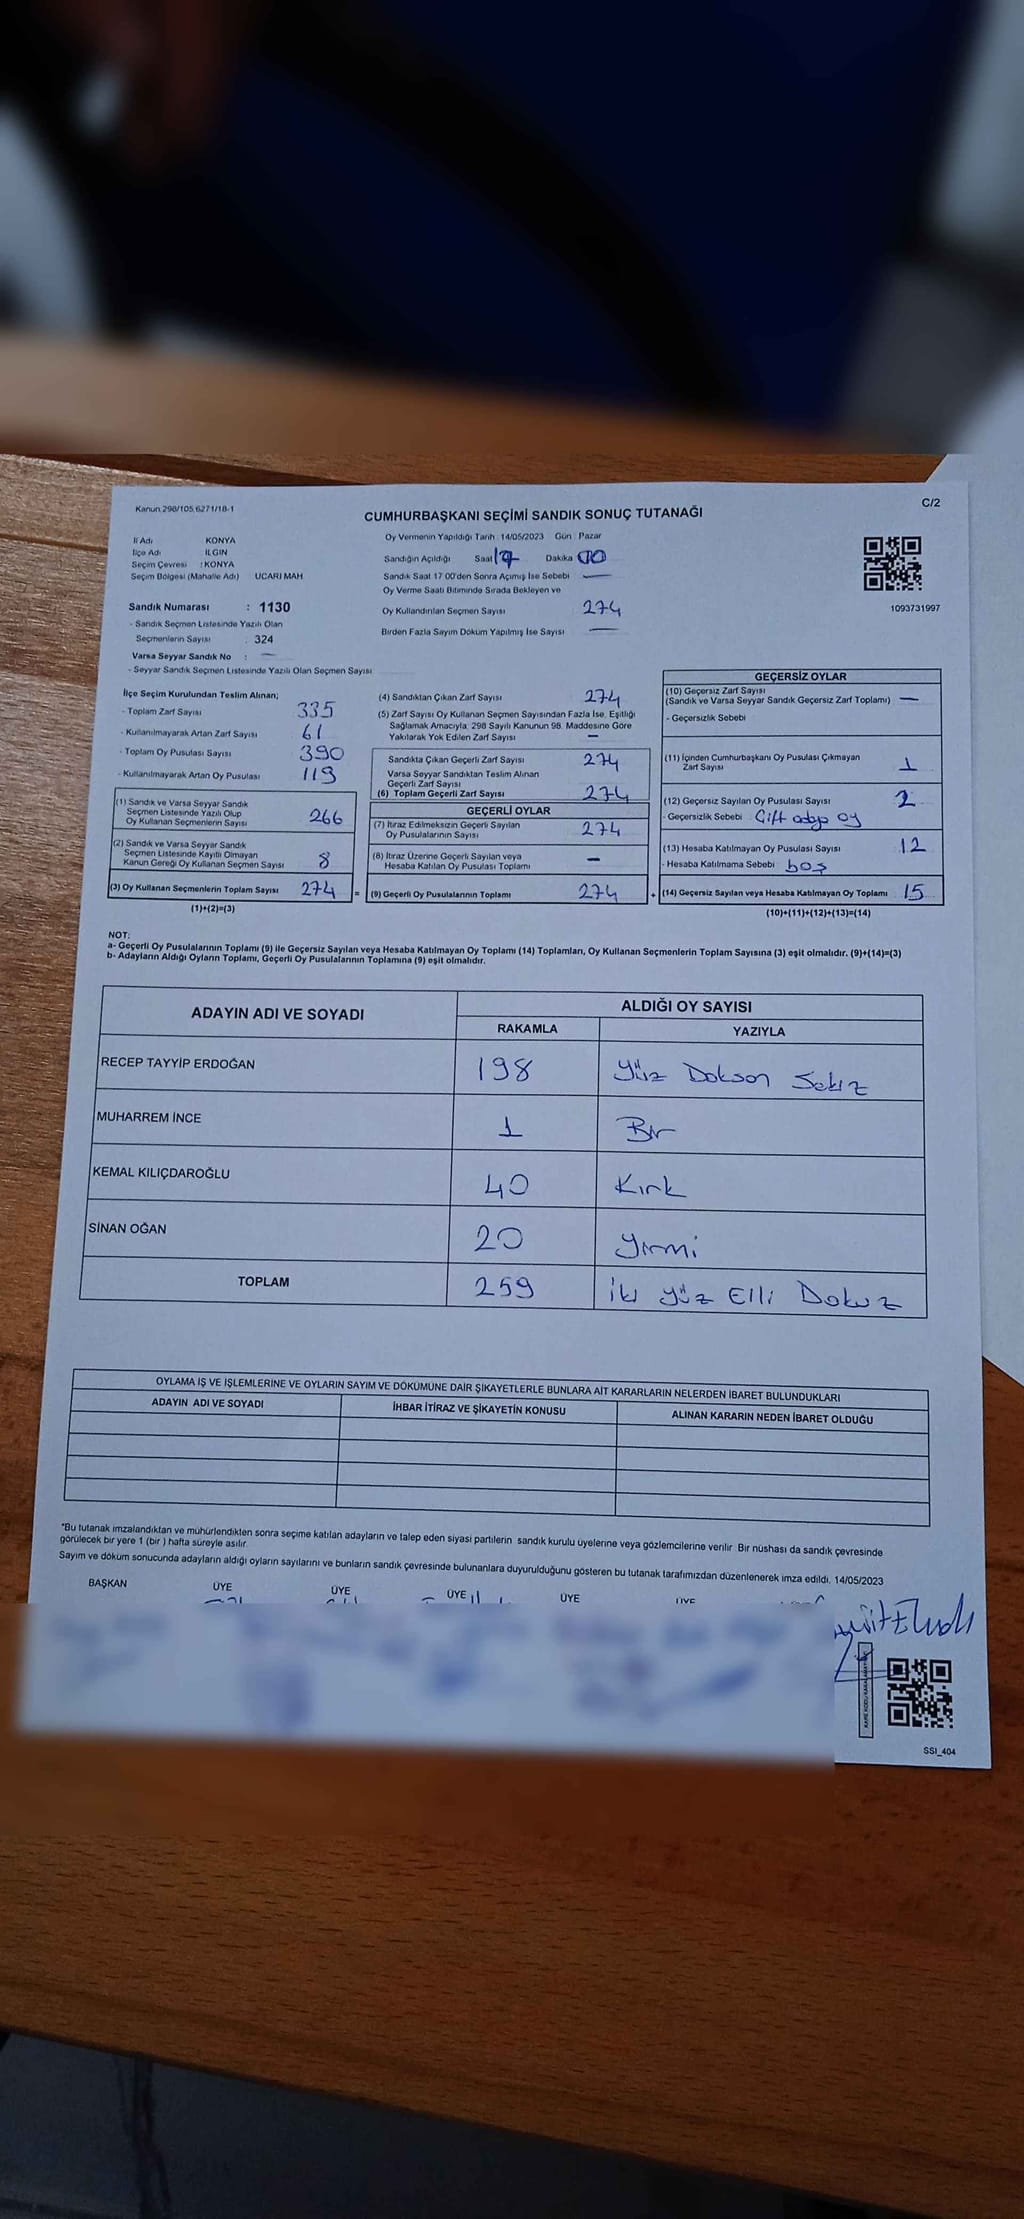 Kanun 298/105, 6271/18-1
C/2
CUMHURBAŞKANI SEÇİMİ SANDIK SONUÇ TUTANAĞI
İl Adı KONYA
İlçe Adı ILGIN
Seçim Çevresi : KONYA
Seçim Bölgesi (Mahalle Adı) UCARI MAH.
Sandık Numarası : 1130
- Sandık Seçmen Listesinde Yazılı Olan
Seçmenlerin Sayısı : 324
Varsa Seyyar Sandık No : —
- Seyyar Sandık Seçmen Listesinde Yazılı Olan Seçmen Sayısı
Oy Vermenin Yapıldığı Tarih 14/05/2023 Gün Pazar
Sandığın Açıldığı Saat 17 Dakika 00
Sandık Saat 17 00'den Sonra Açımış İse Sebebi —
Oy Verme Saati Bitiminde Sırada Bekleyen ve
Oy Kullandırılan Seçmen Sayısı 274
Birden Fazla Sayım Döküm Yapılmış İse Sayısı —
1093731997
İlçe Seçim Kurulundan Teslim Alınan;
- Toplam Zarf Sayısı 335
- Kullanılmayarak Artan Zarf Sayısı 61
- Toplam Oy Pusulası Sayısı 390
- Kullanılmayarak Artan Oy Pusulası 119
(1) Sandık ve Varsa Seyyar Sandık
Seçmen Listesinde Yazılı Olup
Oy Kullanan Seçmenlerin Sayısı 266
(2) Sandık ve Varsa Seyyar Sandık
Seçmen Listesinde Kayıtlı Olmayan
Kanun Gereği Oy Kullanan Seçmen Sayısı 8
(3) Oy Kullanan Seçmenlerin Toplam Sayısı 274 =
(1)+(2)=(3)
(4) Sandıktan Çıkan Zarf Sayısı 274
(5) Zarf Sayısı Oy Kullanan Seçmen Sayısından Fazla İse, Eşitliği
Sağlamak Amacıyla, 298 Sayılı Kanunun 98. Maddesine Göre
Yakılarak Yok Edilen Zarf Sayısı —
Sandıkta Çıkan Geçerli Zarf Sayısı 274
Varsa Seyyar Sandıktan Teslim Alınan
Geçerli Zarf Sayısı
(6) Toplam Geçerli Zarf Sayısı 274
GEÇERLİ OYLAR
(7) İtiraz Edilmeksizin Geçerli Sayılan
Oy Pusulalarının Sayısı 274
(8) İtiraz Üzerine Geçerli Sayılan veya
Hesaba Katılan Oy Pusulası Toplamı —
(9) Geçerli Oy Pusulalarının Toplamı 274 +
GEÇERSİZ OYLAR
(10) Geçersiz Zarf Sayısı
(Sandık ve Varsa Seyyar Sandık Geçersiz Zarf Toplamı) —
- Geçersizlik Sebebi
(11) İçinden Cumhurbaşkanı Oy Pusulası Çıkmayan
Zarf Sayısı 1
(12) Geçersiz Sayılan Oy Pusulası Sayısı 2
- Geçersizlik Sebebi Çift oy
(13) Hesaba Katılmayan Oy Pusulası Sayısı 12
- Hesaba Katılmama Sebebi boş
(14) Geçersiz Sayılan veya Hesaba Katılmayan Oy Toplamı 15
(10)+(11)+(12)+(13)=(14)
NOT:
a- Geçerli Oy Pusulalarının Toplamı (9) ile Geçersiz Sayılan veya Hesaba Katılmayan Oy Toplamı (14) Toplamları, Oy Kullanan Seçmenlerin Toplam Sayısına (3) eşit olmalıdır. (9)+(14)=(3)
b- Adayların Aldığı Oyların Toplamı, Geçerli Oy Pusulalarının Toplamına (9) eşit olmalıdır.
ADAYIN ADI VE SOYADI ALDIĞI OY SAYISI
RAKAMLA YAZIYLA
RECEP TAYYİP ERDOĞAN 198 Yüz Dokson Sekiz
MUHARREM İNCE 1 Bir
KEMAL KILIÇDAROĞLU 40 Kırk
SİNAN OĞAN 20 Yirmi
TOPLAM 259 İki Yüz Elli Dokuz
OYLAMA İŞ VE İŞLEMLERİNE VE OYLARIN SAYIM VE DÖKÜMÜNE DAİR ŞİKAYETLERLE BUNLARA AİT KARARLARIN NELERDEN İBARET BULUNDUKLARI
ADAYIN ADI VE SOYADI İHBAR İTİRAZ VE ŞİKAYETİN KONUSU ALINAN KARARIN NEDEN İBARET OLDUĞU
*Bu tutanak imzalandıktan ve mühürlendikten sonra seçime katılan adayların ve talep eden siyasi partilerin sandık kurulu üyelerine veya gözlemcilerine verilir Bir nüshası da sandık çevresinde
görülecek bir yere 1 (bir ) hafta süreyle asılır.
Sayım ve döküm sonucunda adayların aldığı oyların sayılarını ve bunların sandık çevresinde bulunanlara duyurulduğunu gösteren bu tutanak tarafımızdan düzenlenerek imza edildi. 14/05/2023
BAŞKAN ÜYE ÜYE ÜYE ÜYE ÜYE
SSI_404